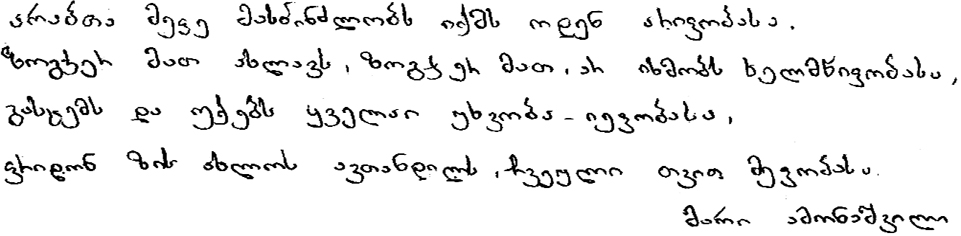 არაბთა მეფე მასპინძლობს იქმს ოდენ არიფობასა.
ზოგჯერ მათ ახლავს, ზოგჯერ მათ, არ იხმობს ხელმწიფობასა,
გასცემს და უქებს ყველაი უხვობა-იეფობასა,
ფრიდონ ზის ახლოს ავთანდილს, ჩვეული თვით მეფობასა.
მარი ამონაშვილი